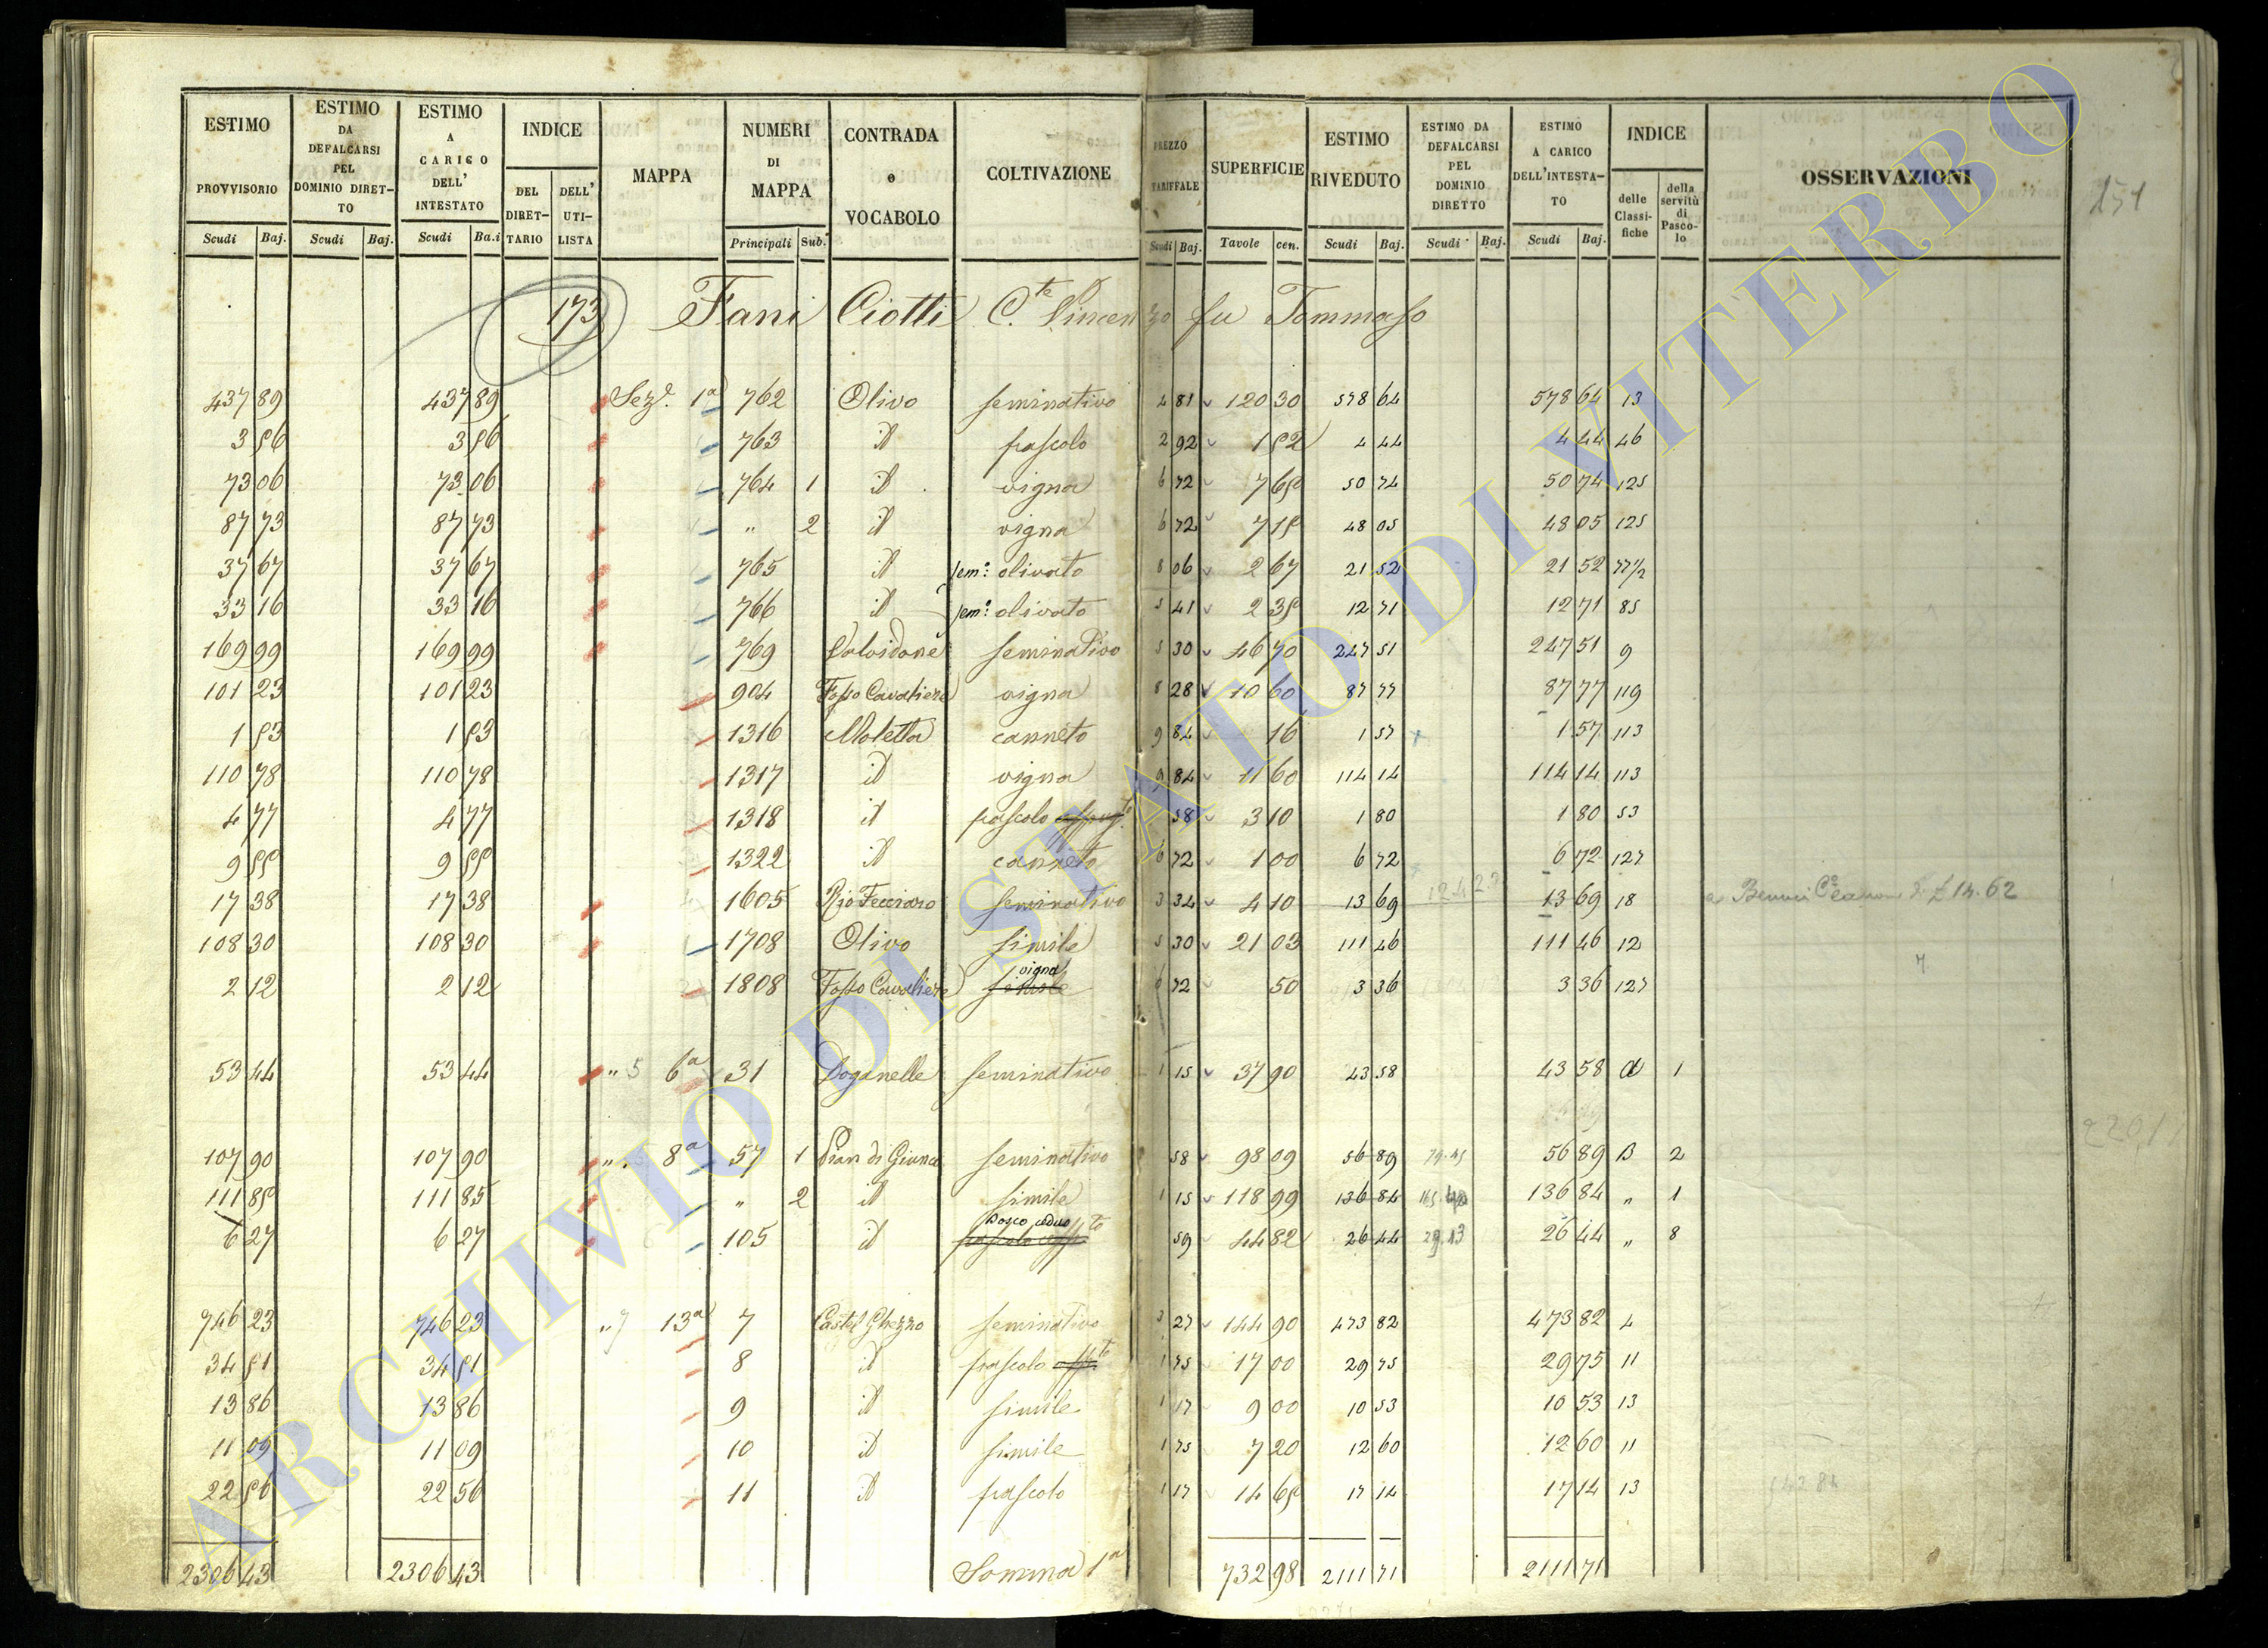 ESTIMO PROVVISORIO Scudi Baj.
ESTIMO DA DEFALCARSI PEL DOMINIO DIRET-TO Scudi Baj.
ESTIMO A CARICO DELL' INTESTATO Scudi Ba.i
INDICE DEL DIRET-TARIO DELL' UTI-LISTA
MAPPA
NUMERI DI MAPPA Principali Sub.
CONTRADA o VOCABOLO
COLTIVAZIONE
PREZZO TARIFFALE Scudi Baj.
SUPERFICIE Tavole cen.
ESTIMO RIVEDUTO Scudi Baj.
ESTIMO DA DEFALCARSI PEL DOMINIO DIRETTO Scudi Baj.
ESTIMO A CARICO DELL'INTESTA-TO Scudi Baj.
INDICE delle Classi-fiche della servitù di Pasco-lo
OSSERVAZIONI
173 Fani Ciotti C.te Vincenzo fu Tommaso
437 89 437 89 Sez.e 1a 762 Olivo seminativo 4 81 120 30 578 64 578 64 13
3 56 3 56 763 id pascolo 2 92 1 52 4 44 4 44 46
73 06 73 06 764 1 id vigna 6 72 7 65 50 74 50 74 125
87 73 87 73 " 2 id vigna 6 72 7 15 48 05 48 05 125
37 67 37 67 765 id sem.o olivato 8 06 2 67 21 52 21 52 77 1/2
33 16 33 16 766 id sem.o olivato 5 41 2 35 12 71 12 71 85
169 99 169 99 769 seminativo 5 30 46 70 247 51 247 51 9
101 23 101 23 904 Fosso Cavaliere vigna 8 28 10 60 87 77 87 77 119
1 53 1 53 1316 Moletta canneto 9 84 16 1 57 1 57 113
110 78 110 78 1317 id vigna 9 84 11 60 114 14 114 14 113
4 77 4 77 1318 id pascolo 58 3 10 1 80 1 80 53
9 55 9 55 1322 id canneto 6 72 1 00 6 72 6 72 127
17 38 17 38 1605 Rio seminativo 3 34 4 10 13 69 13 69 18 £ 14.62
108 30 108 30 1708 Olivo simile 5 30 21 03 111 46 111 46 12
2 12 2 12 1808 Fosso Cavaliere simile vigna 6 72 50 3 36 3 36 127
53 44 53 44 " 5 6a 31 Doganelle seminativo 1 15 37 90 43 58 43 58 a 1
107 90 107 90 " 8a 57 1 Pian di Giunco seminativo 58 98 09 56 89 56 89 B 2
111 85 111 85 " 2 id simile 1 15 118 99 136 84 136 84 " 1
6 27 6 27 105 id Bosco ceduo 59 44 82 26 44 29 13 26 44 " 8
746 23 746 23 " 7 13a 7 Castel Ghezzo seminativo 3 27 144 90 473 82 473 82 4
34 51 34 51 8 id pascolo 1 75 17 00 29 75 29 75 11
13 86 13 86 9 id simile 1 17 9 00 10 53 10 53 13
11 09 11 09 10 id simile 1 75 7 20 12 60 12 60 11
22 56 22 56 11 id pascolo 1 17 14 65 17 14 17 14 13
2306 43 2306 43 Somma 1a 732 98 2111 71 2111 71
ARCHIVIO DI STATO DI VITERBO